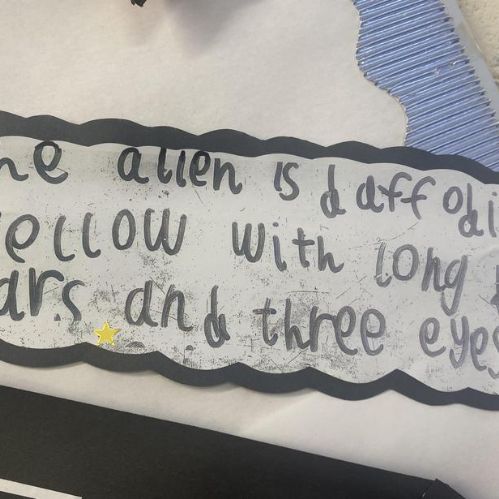 he alien is daffodi
yellow with long
ars and three eyes